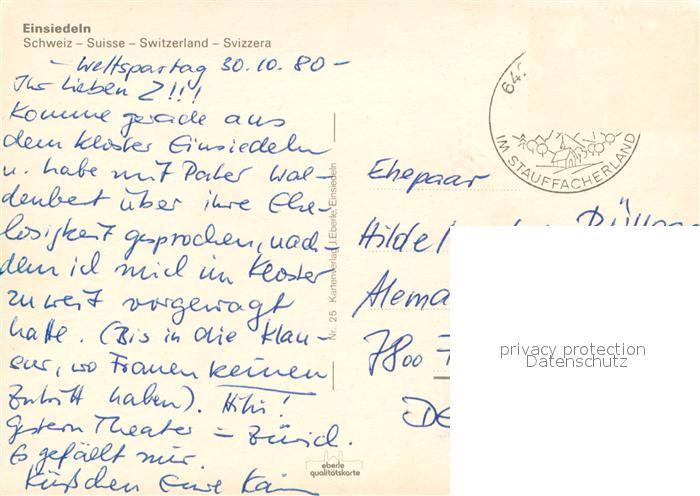 Einsiedeln
Schweiz – Suisse – Switzerland – Svizzera
– Weltspartag 30.10.80 –
Ihr lieben 2!!!
Komme gerade aus
dem Kloster Einsiedeln
u. habe mit Pater Wal-
denbert über ihre Ehe-
losigkeit gesprochen, nach-
dem ich mich im Kloster
zu weit vorgewagt
hatte. (Bis in die Klau-
sur, wo Frauen keinen
Zutritt haben). Hihi!
Gestern Theater – Zürich.
Es gefällt mir.
Küßchen Eure
Nr. 25 Kartenverlag J. Eberle, Einsiedeln
eberle
qualitätskarte
642
IM STAUFFACHERLAND
Ehepaar
Hilde
Alema
7800
DE
privacy protection
Datenschutz